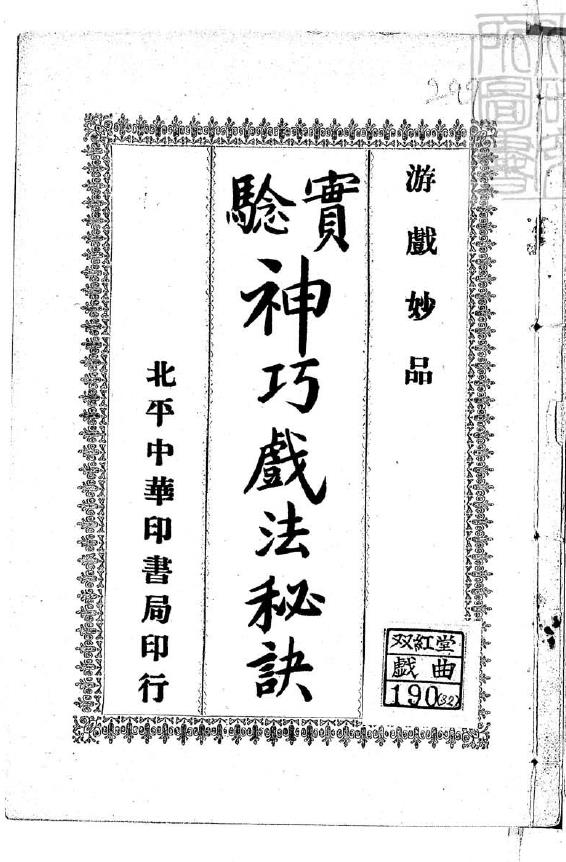 游戲妙品
實驗
神巧戲法秘訣
北平中華印書局印行
双紅堂
戯曲
190(32)